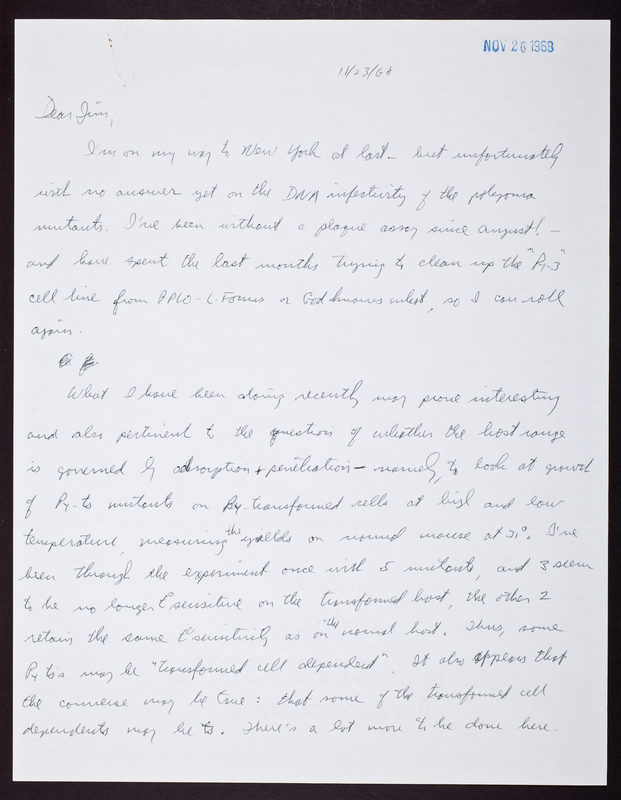 NOV 26 1968
11/23/68
Dear Jim,
I'm on my way to New York at last - but unfortunately
with no answer yet on the DNA infectivity of the polyoma
mutants. I've been without a plaque assay since August! -
and have spent the last months trying to clean up the "Py-3"
cell line from PPLO - L-Forms or God knows what, so I can roll
again.
What I have been doing recently may prove interesting
and also pertinent to the question of whether the host range
is governed by adsorption + penetration - namely, to look at growth
of Py-ts mutants on Py-transformed cells at high and low
temperature, measuring the yields on normal mouse at 31°. I've
been through the experiment once with 5 mutants, and 3 seem
to be no longer t° sensitive on the transformed host, the other 2
retain the same t° sensitivity as on the normal host. Thus, some
Py ts's may be "transformed cell dependent". It also appears that
the converse may be true: that some of the transformed cell
dependents may be ts. There's a lot more to be done here.